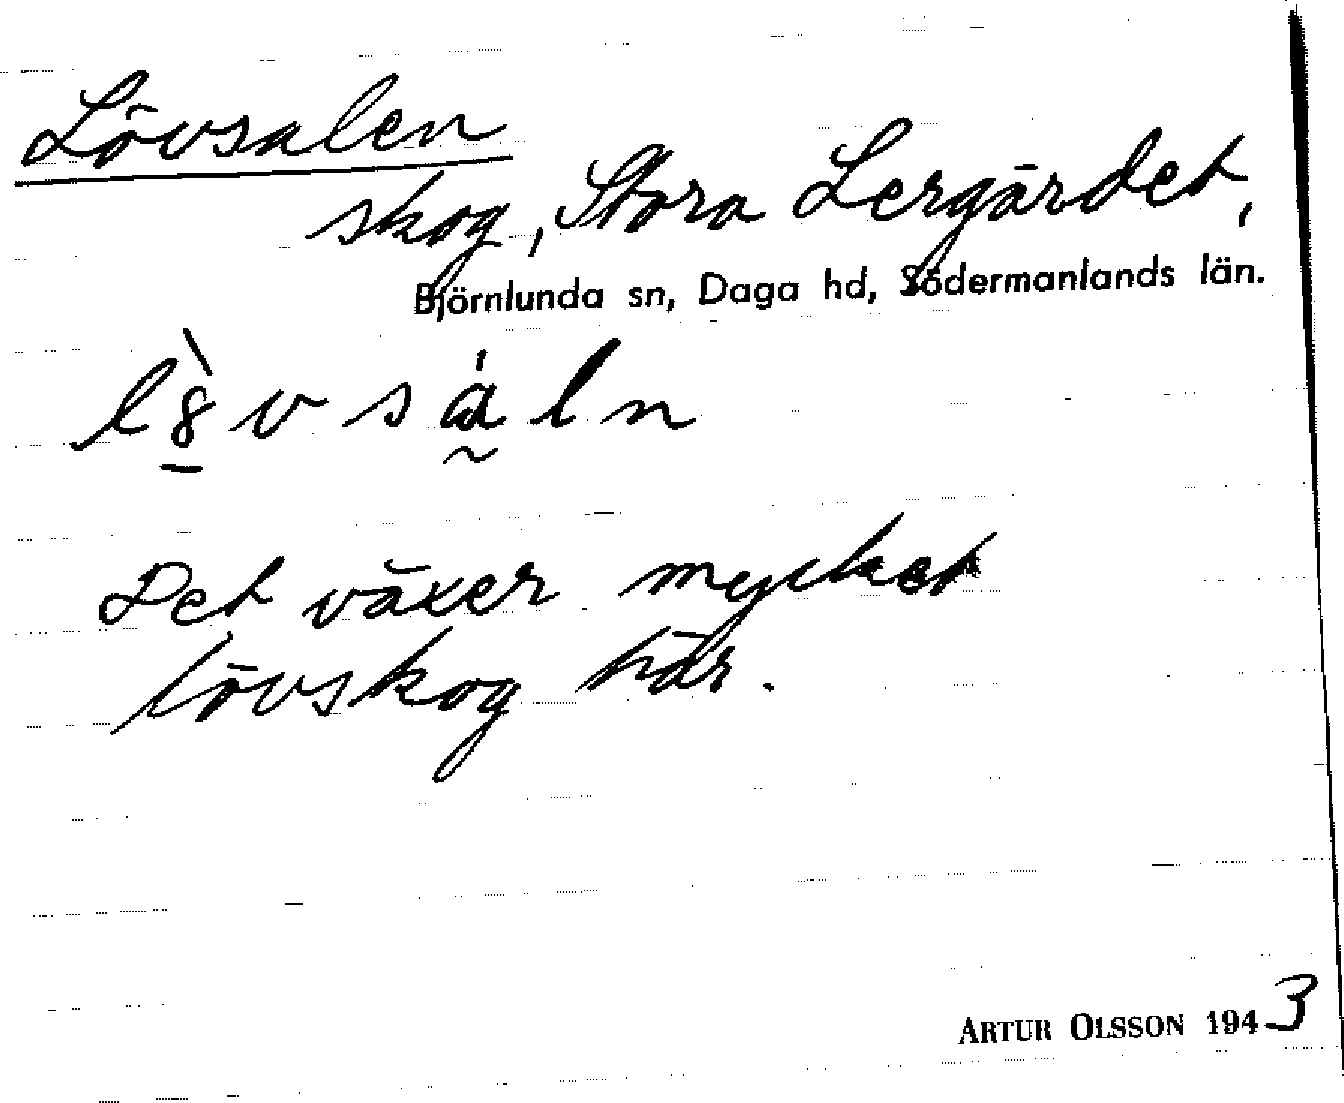 Lövsalen
skog, Stora Lergärdet,
Björnlunda sn, Daga hd, Södermanlands län.
Det växer mycket
lövskog här.
ARTUR OLSSON 1943